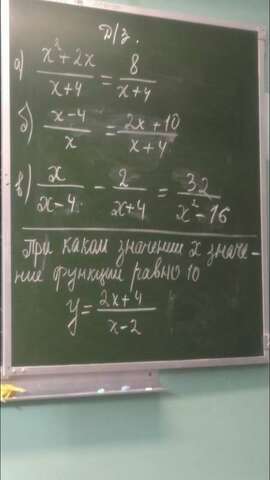 Д/з.
а) x²+2x / x+4 = 8 / x+4
б) x-4 / x = 2x+10 / x+4
в) x / x-4 - 2 / x+4 = 32 / x²-16
При каком значении x значе-
ние функции равно 10
y = 2x+4 / x-2